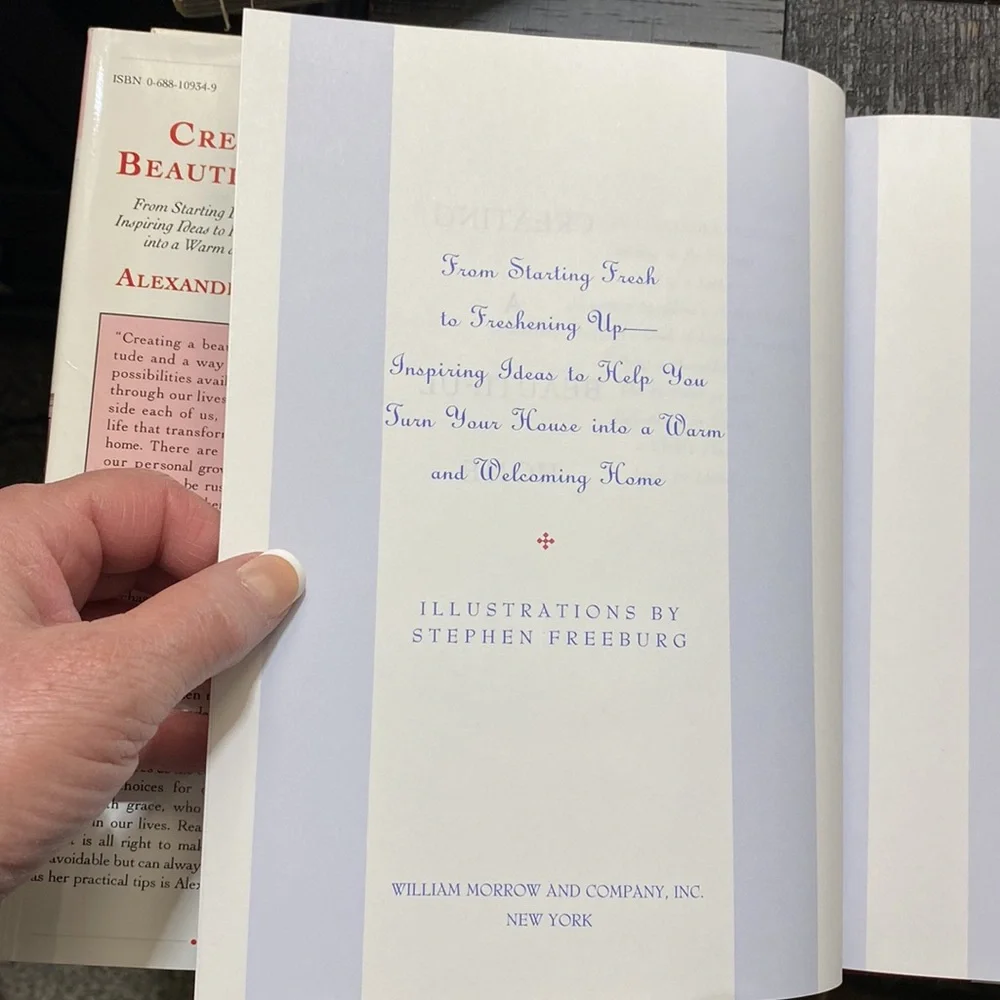 ISBN 0-688-10934-9
CRE
BEAUTI
From Starting
Inspiring Ideas to
into a Warm
ALEXAND
"Creating a beau
tude and a way
possibilities avail
through our lives
side each of us,
life that transfor
home. There are
our personal grov
be rus
choices for
h grace, who
in our lives. Rea
is all right to mal
avoidable but can alway
as her practical tips is Alex
From Starting Fresh
to Freshening Up—
Inspiring Ideas to Help You
Turn Your House into a Warm
and Welcoming Home
ILLUSTRATIONS BY
STEPHEN FREEBURG
WILLIAM MORROW AND COMPANY, INC.
NEW YORK